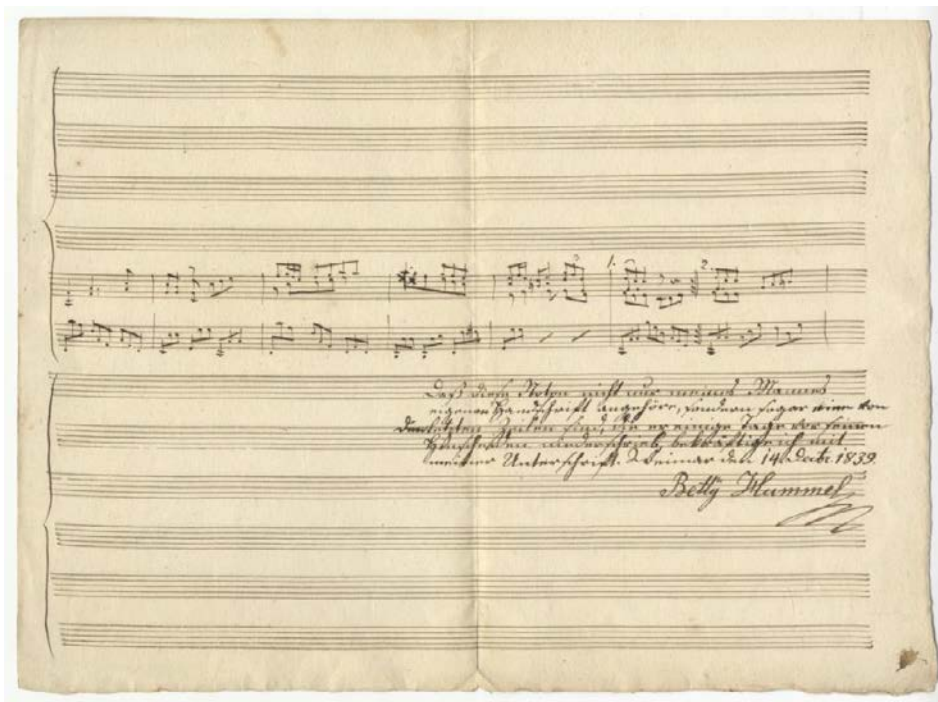 1. 2.
Daß diese Noten nicht nur meines Mannes
eigenen Handschrift angehöre, sondern sogar eine von
den letzten Zeilen sind, die er einige Tage vor seinem
Hinscheiden niederschrieb, bekräftige ich mit
meiner Unterschrift. Weimar den 14. Decbr. 1839.
Betty Hummel